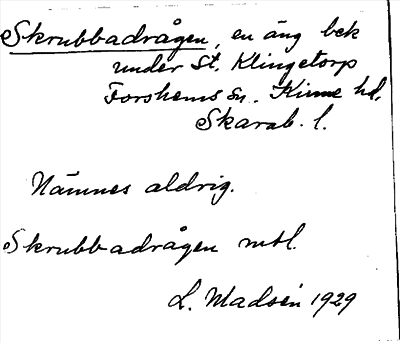 Skrubbadrågen, en äng bek
under St. Klingetorp
Forshems Sn. Kinne hd.
Skarab. l.
Nämnes aldrig.
Skrubbadrågen mtl.
L. Madsén 1929